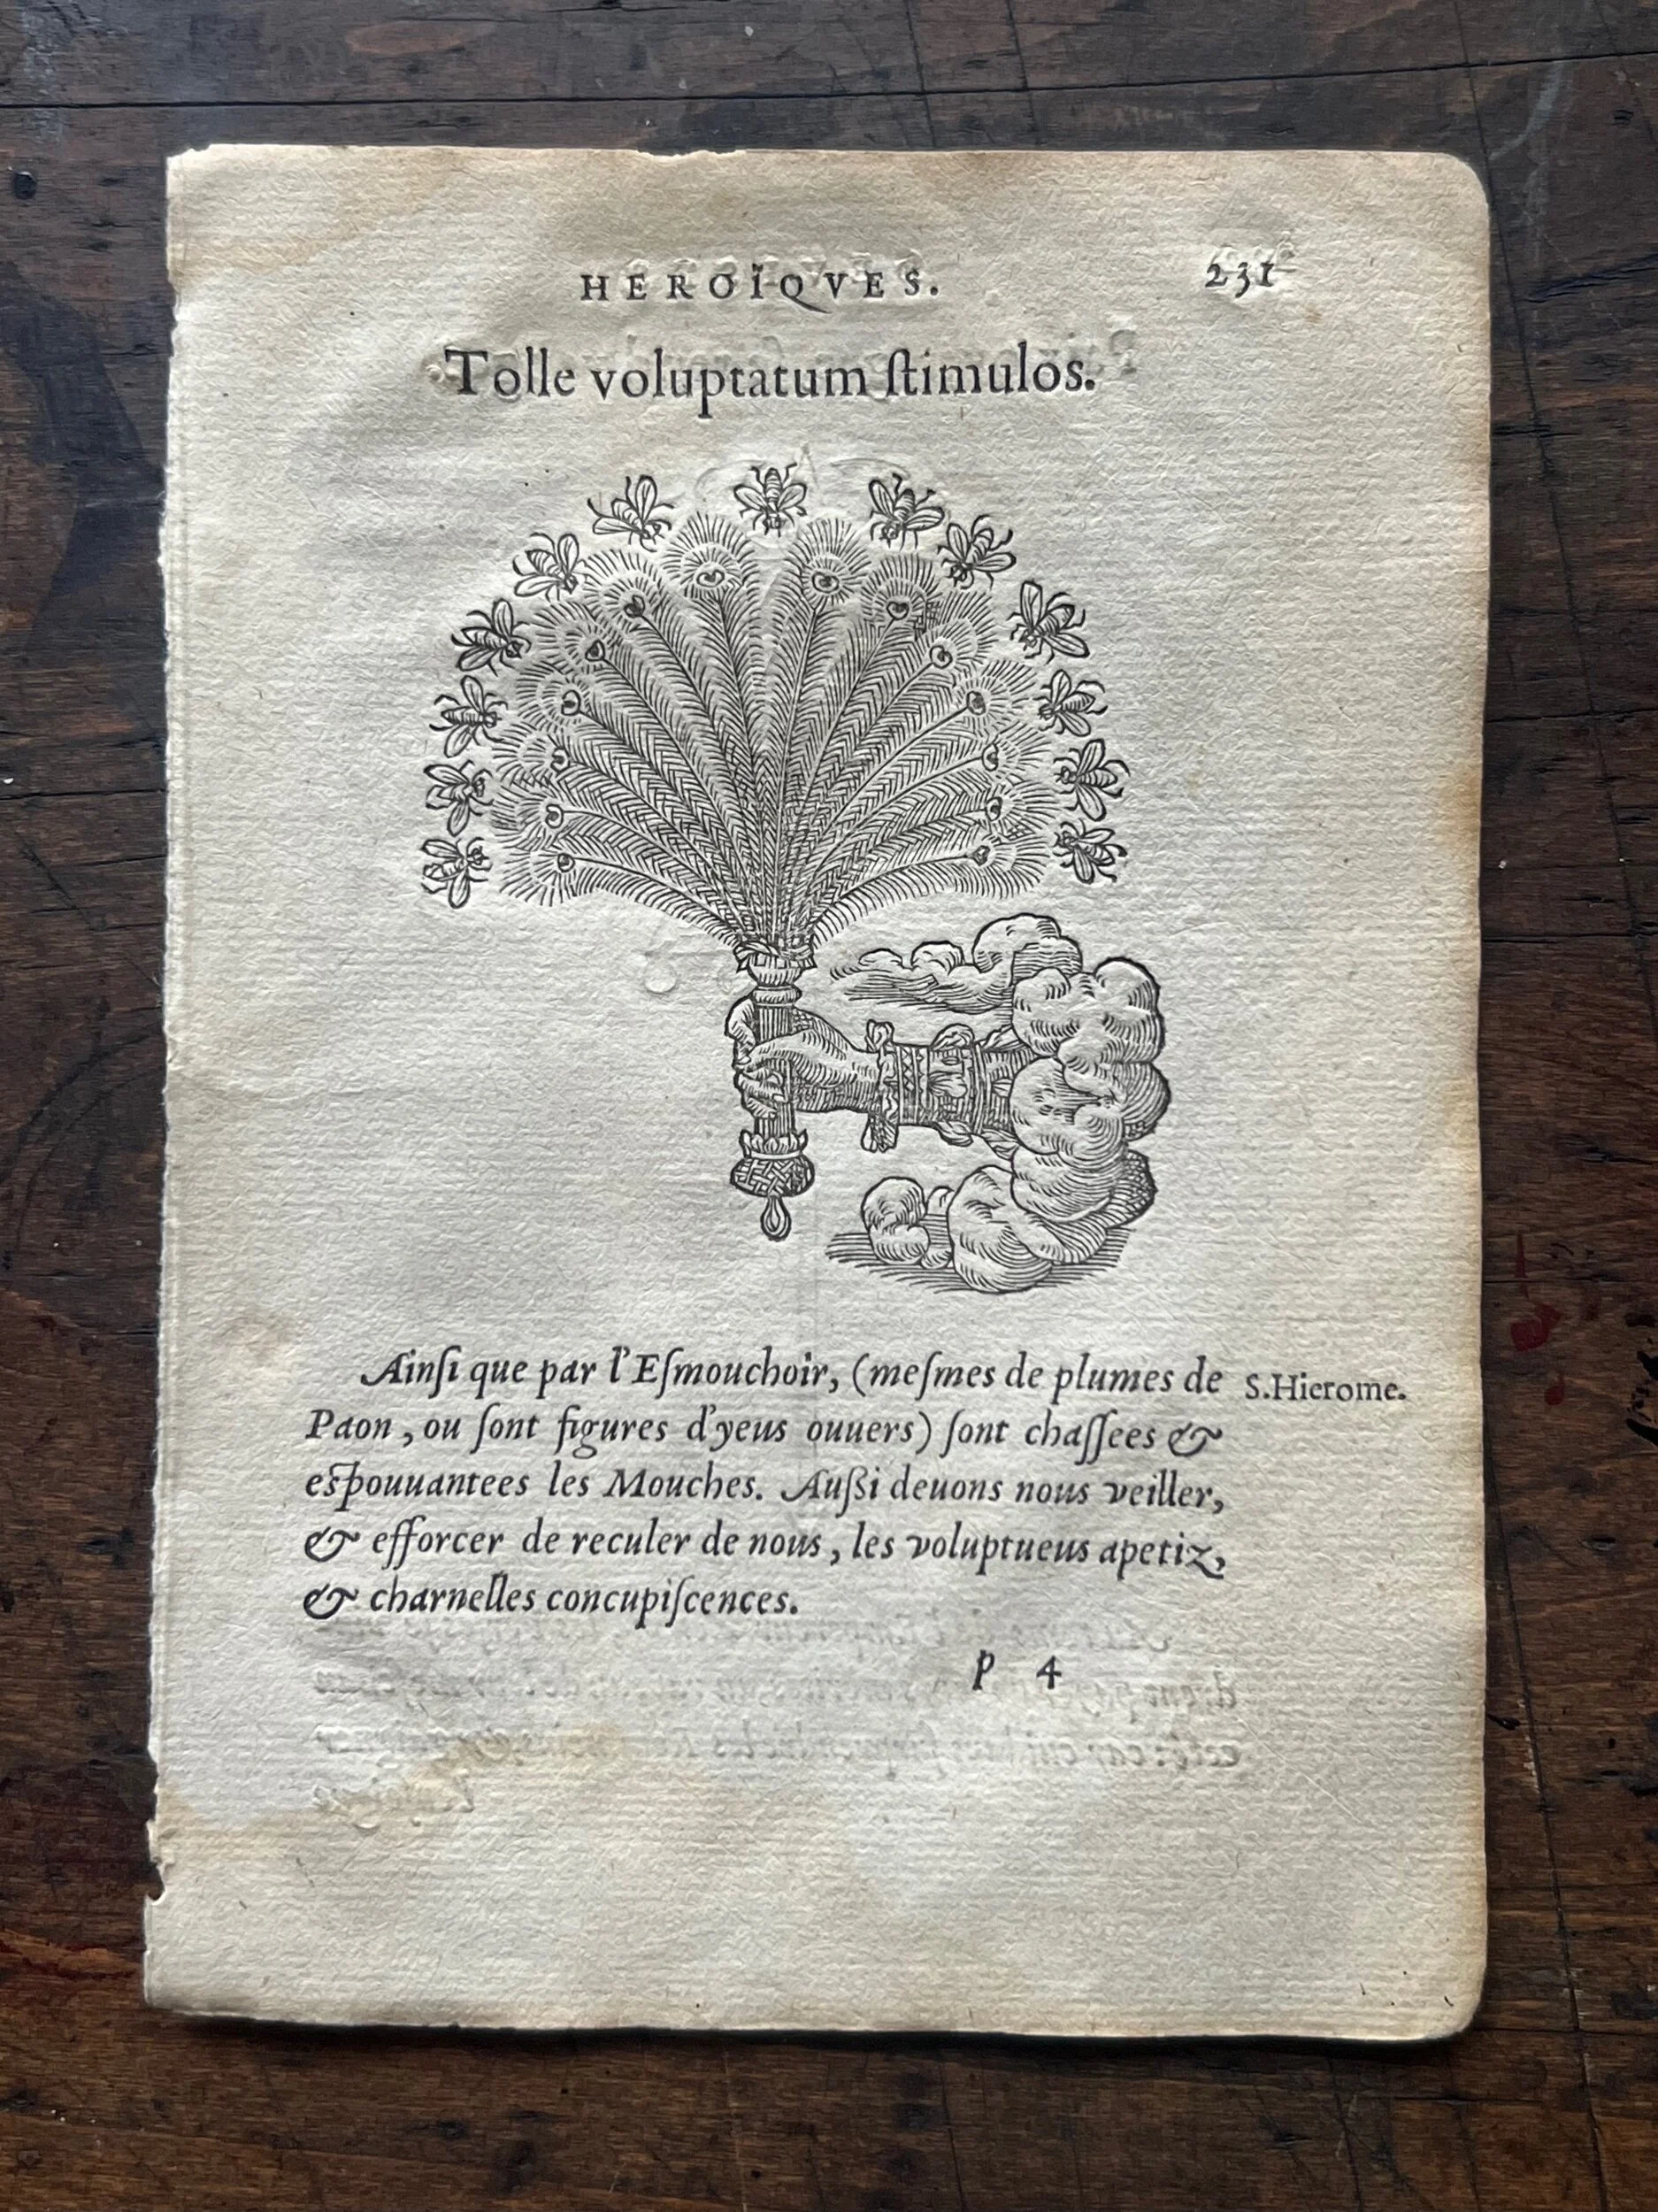 HEROÏQVES. 231
Tolle voluptatum ſtimulos.
Ainſi que par l'Eſmouchoir, (meſmes de plumes de S.Hierome.
Paon, ou ſont figures d'yeus ouuers) ſont chaſſees &
eſpouuantees les Mouches. Außi deuons nous veiller,
& efforcer de reculer de nous, les voluptueus apetiz,
& charnelles concupiſcences.
P 4